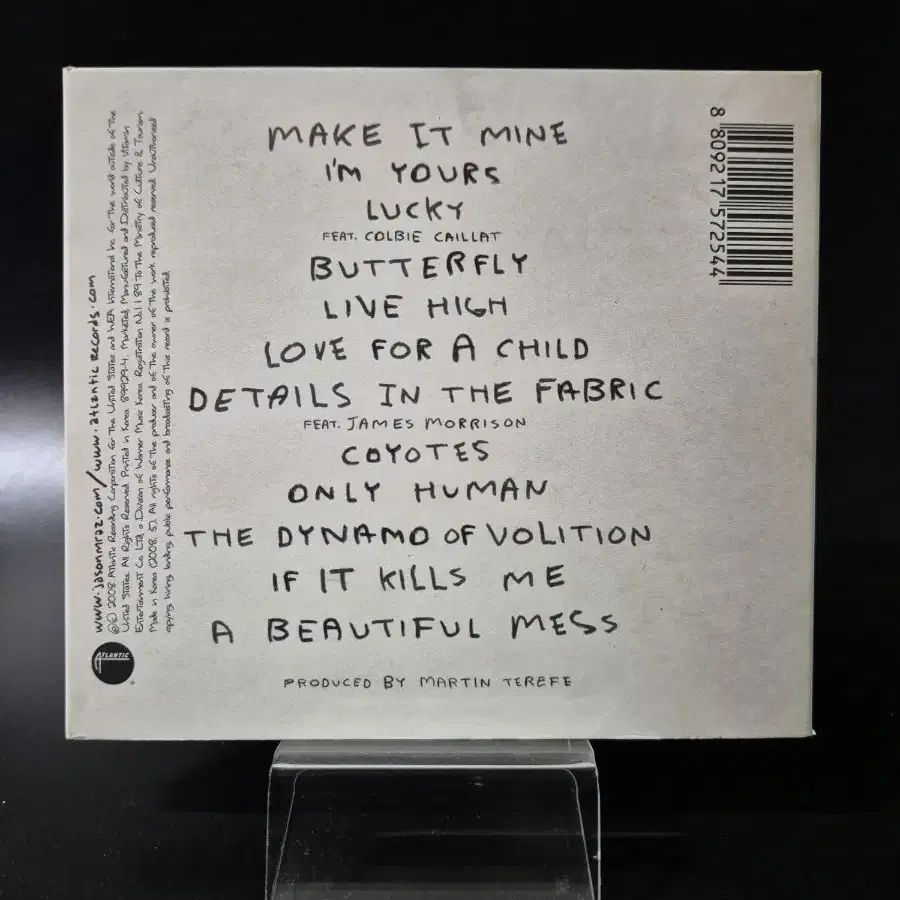 MAKE IT MINE
I'M YOURS
LUCKY
FEAT. COLBIE CAILLAT
BUTTERFLY
LIVE HIGH
LOVE FOR A CHILD
DETAILS IN THE FABRIC
FEAT. JAMES MORRISON
COYOTES
ONLY HUMAN
THE DYNAMO OF VOLITION
IF IT KILLS ME
A BEAUTIFUL MESS
PRODUCED BY MARTIN TEREFE
8 809217 572544
www.jasonmraz.com/www.atlantic records.com
℗© 2008 Atlantic Recording Corporation for the United States and WEA International Inc. for the world outside of the
United States. All Rights Reserved. Printed in Korea. 899099-4. Marketed, Manufactured and Distributed by Warner
Entertainment Co. LTD, a Division of Warner Music Korea. Registration No.1189 To the Ministry of Culture & Tourism.
Made in Korea (2008. 5). All rights of the producer and of the owner of the work reproduced reserved. Unauthorized
copying, hiring, lending, public performance and broadcasting of this record is prohibited.
ATLANTIC